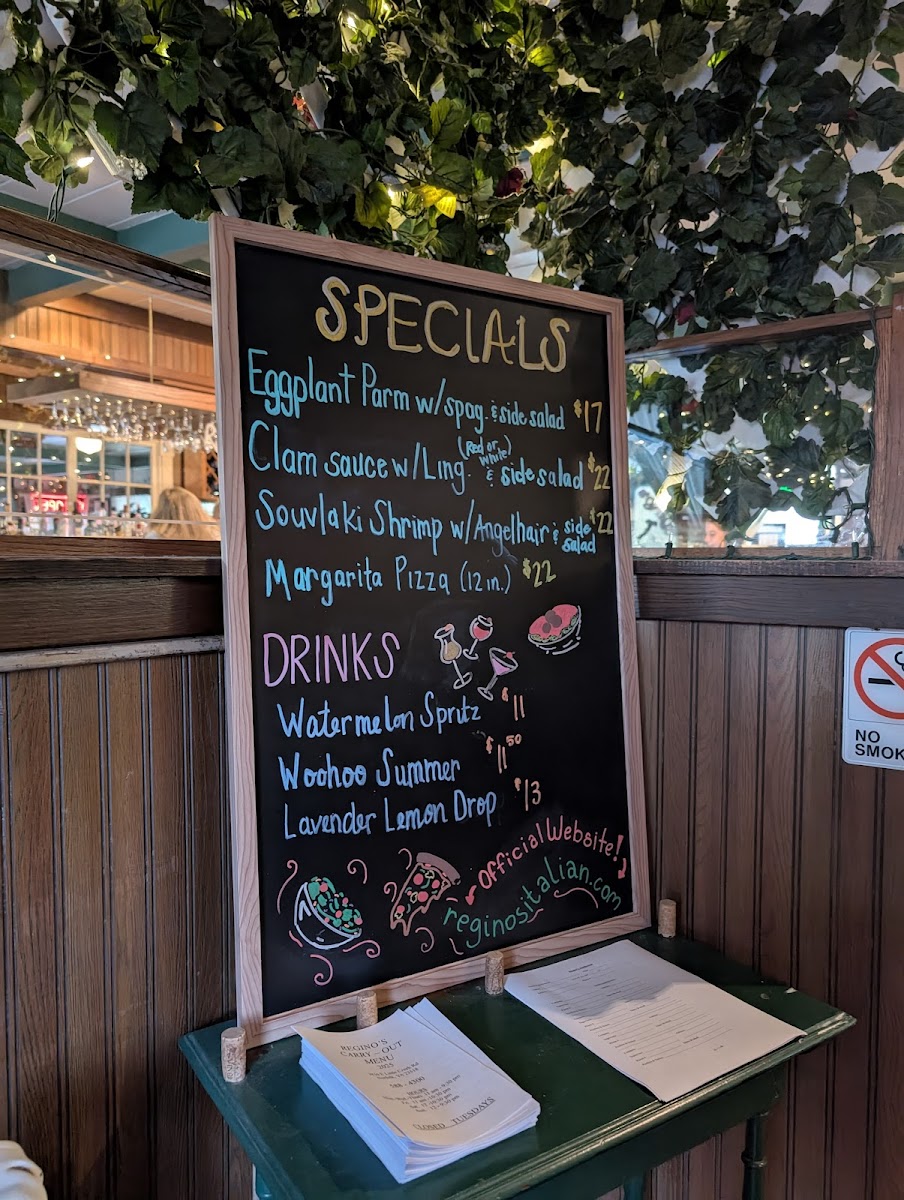 SPECIALS
Eggplant Parm w/spag. & side salad $17
Clam sauce w/Ling. (Red or white) & side salad $22
Souvlaki Shrimp w/Angelhair & side salad $22
Margarita Pizza (12 in.) $22
DRINKS
Watermelon Spritz $11
Woohoo Summer $11.50
Lavender Lemon Drop $13
Official Website!
reginositalian.com
NO
SMOK
REGINO'S
CARRY-OUT
MENU
2025
588-4300
HOURS
CLOSED TUESDAYS